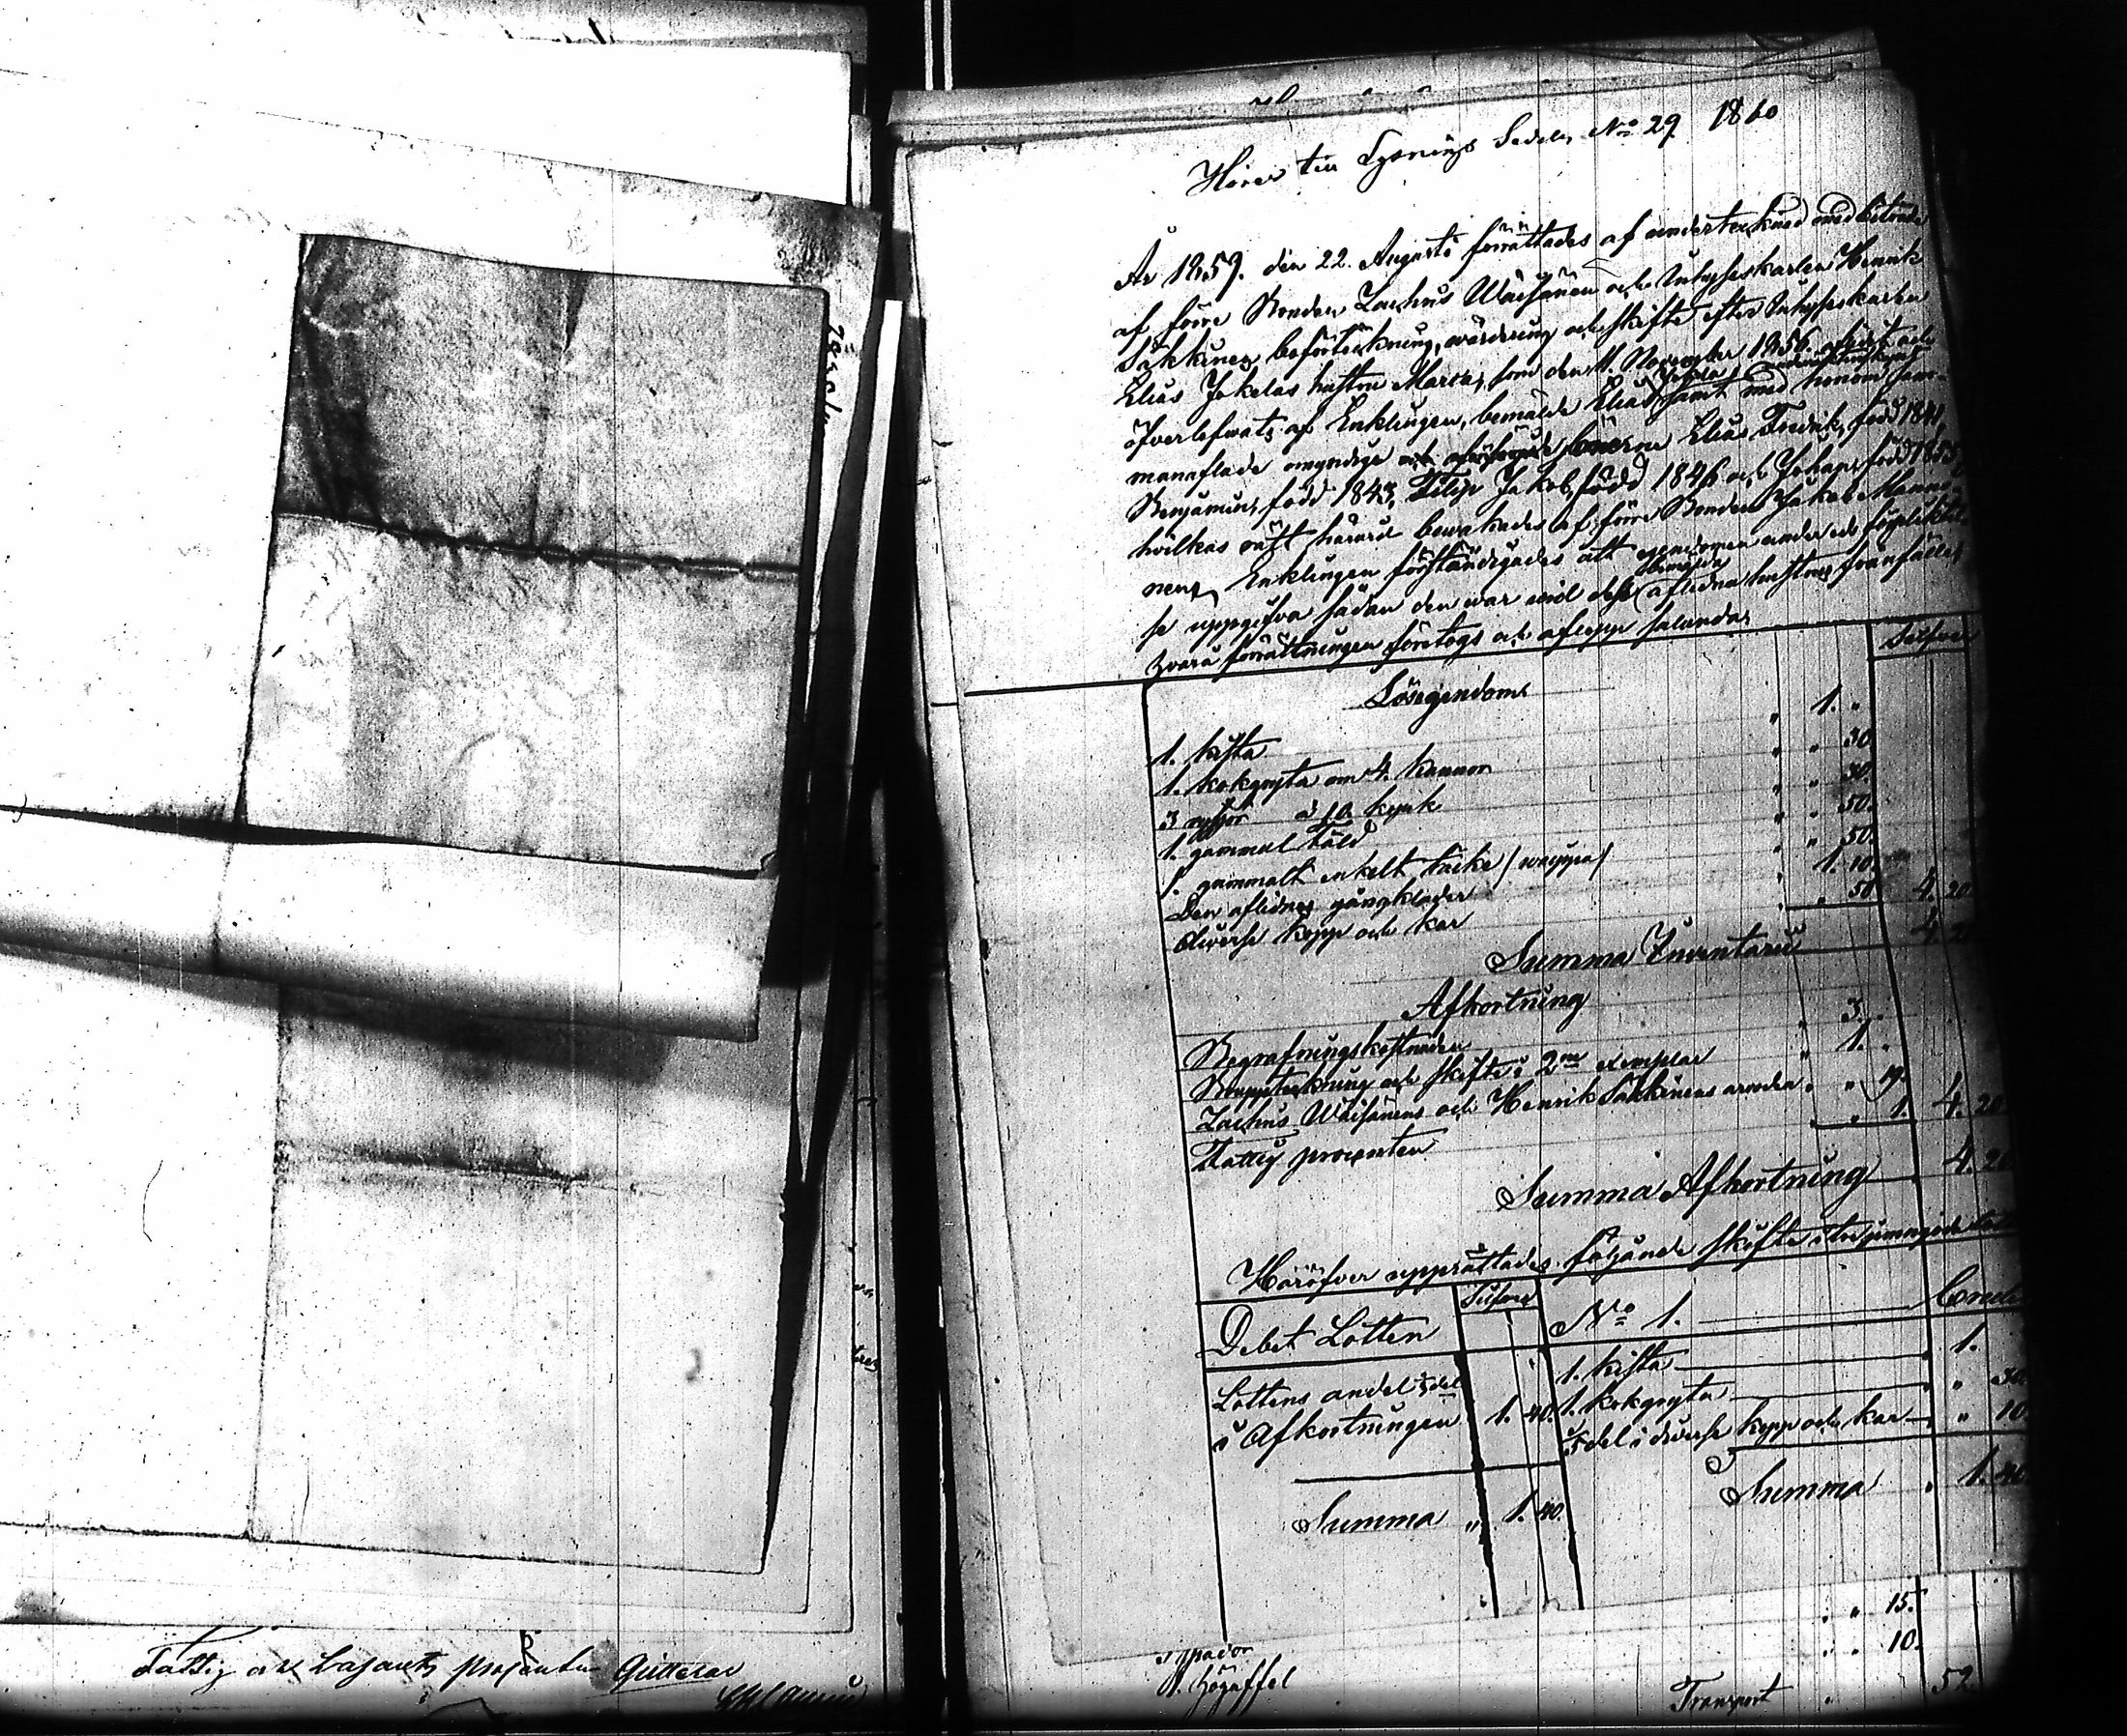 Hörer till Lysnings Sedeln No 29 1860
År 1859. den 22. Augusti förrättades af undertecknad med biträde
af förre Bonden Zachris Wäisänen och Inhyseskarlen Henrik
Säkkinen bouppteckning, värdering och skifte efter Inhyseskarlen
Elias Jokelas hustru Maria, som den 11. November 1856 aflidit och
öfverlefwats af Enklingen, bemälde Elias Jokela samt med honom sam-
manaflade omyndige barnen Elias Fredrik, född 1841,
Benjamin, född 1843, Filip Jakob, född 1846 och Johan, född 1855,
hvilkas rätt härwid bewakades af förre Bonden Jakob Manni-
nen. Enklingen förständigades att egendomen under ed förpliktel-
se uppgifva sådan den war wid dess bemälda aflidna hustrus frånfälle,
hvarå förrättningen företogs och aflopp sålunda:
Silfver
Lösegendom
1. kista " 1. "
1. kokgryta om 4. kannor " " 30
3 ryssjor à 10 kopek " " 30.
1. gammal fäld " " 50.
1. gammalt enkelt täcke / waippa / " " 50.
Den aflidnes gångkläder " 1. 10.
Diverse kopp och kar " " 50 4. 20
Summa Inventarii 4. 20
Afkortning
Begrafningskostnaden " 3. "
Bouppteckning och skifte i 2ne exemplar " 1. "
Zachris Wäisänens och Henrik Säkkinens arvoden " " 19.
Fattig procenten " " 1. 4. 20
Summa Afkortning 4. 20
Häröfver upprättades följande skifte
Debet Lotten Silfver No 1. Credit
Lottens andel 1/3 del 1. kista 1.
i Afkortningen 1. 40. 1. kokgryta " 30
1/5 del i diverse kopp och kar " 10.
Summa " 1. 40. Summa " 1. 40.
" " 15.
spador " " 10.
1. högaffel
Transport " 52
Fattig och procenten Quitteras